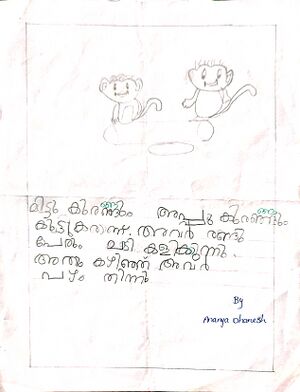 മിട്ടു കുരങ്ങും അപ്പു കുരങ്ങും
കൂട്ടുകാരാണ്. അവർ രണ്ടു
പേരും ചാടി കളിക്കുന്നു.
അതു കഴിഞ്ഞ് അവർ
പഴം തിന്നു
By
Ananya Dhanesh